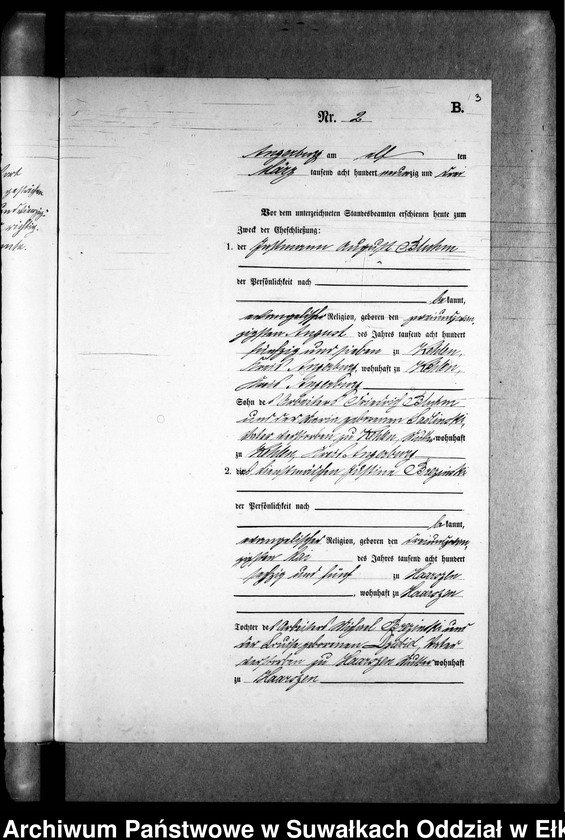 3
B.
Nr. 2
Angerburg am elf ten
März tausend acht hundert neunzig und drei
Vor dem unterzeichneten Standesbeamten erschienen heute zum
Zweck der Eheschließung:
1. der Instmann August Bluhm
der Persönlichkeit nach
bekannt,
evangelischer Religion, geboren den
zigsten August des Jahres tausend acht hundert
fünfzig und sieben zu Kehlen,
Kreis Angerburg, wohnhaft zu Kehlen,
Kreis Angerburg
Sohn des Arbeiters Friedrich Bluhm
und der geborenen Sadlinski,
Vater verstorben zu Kehlen, Mutter wohnhaft
zu Kehlen, Kreis Angerburg
2. die Dienstmädchen Justine Brzinski
der Persönlichkeit nach
bekannt,
evangelischer Religion, geboren den
zigsten Mai des Jahres tausend acht hundert
sechzig und fünf zu Haarszen
, wohnhaft zu Haarszen
Tochter des Arbeiters Michael Brzinski und
der Louise geborenen Vater
verstorben zu Haarszen Mutter wohnhaft
zu Haarszen
Archiwum Państwowe w Suwałkach Oddział w Ełk